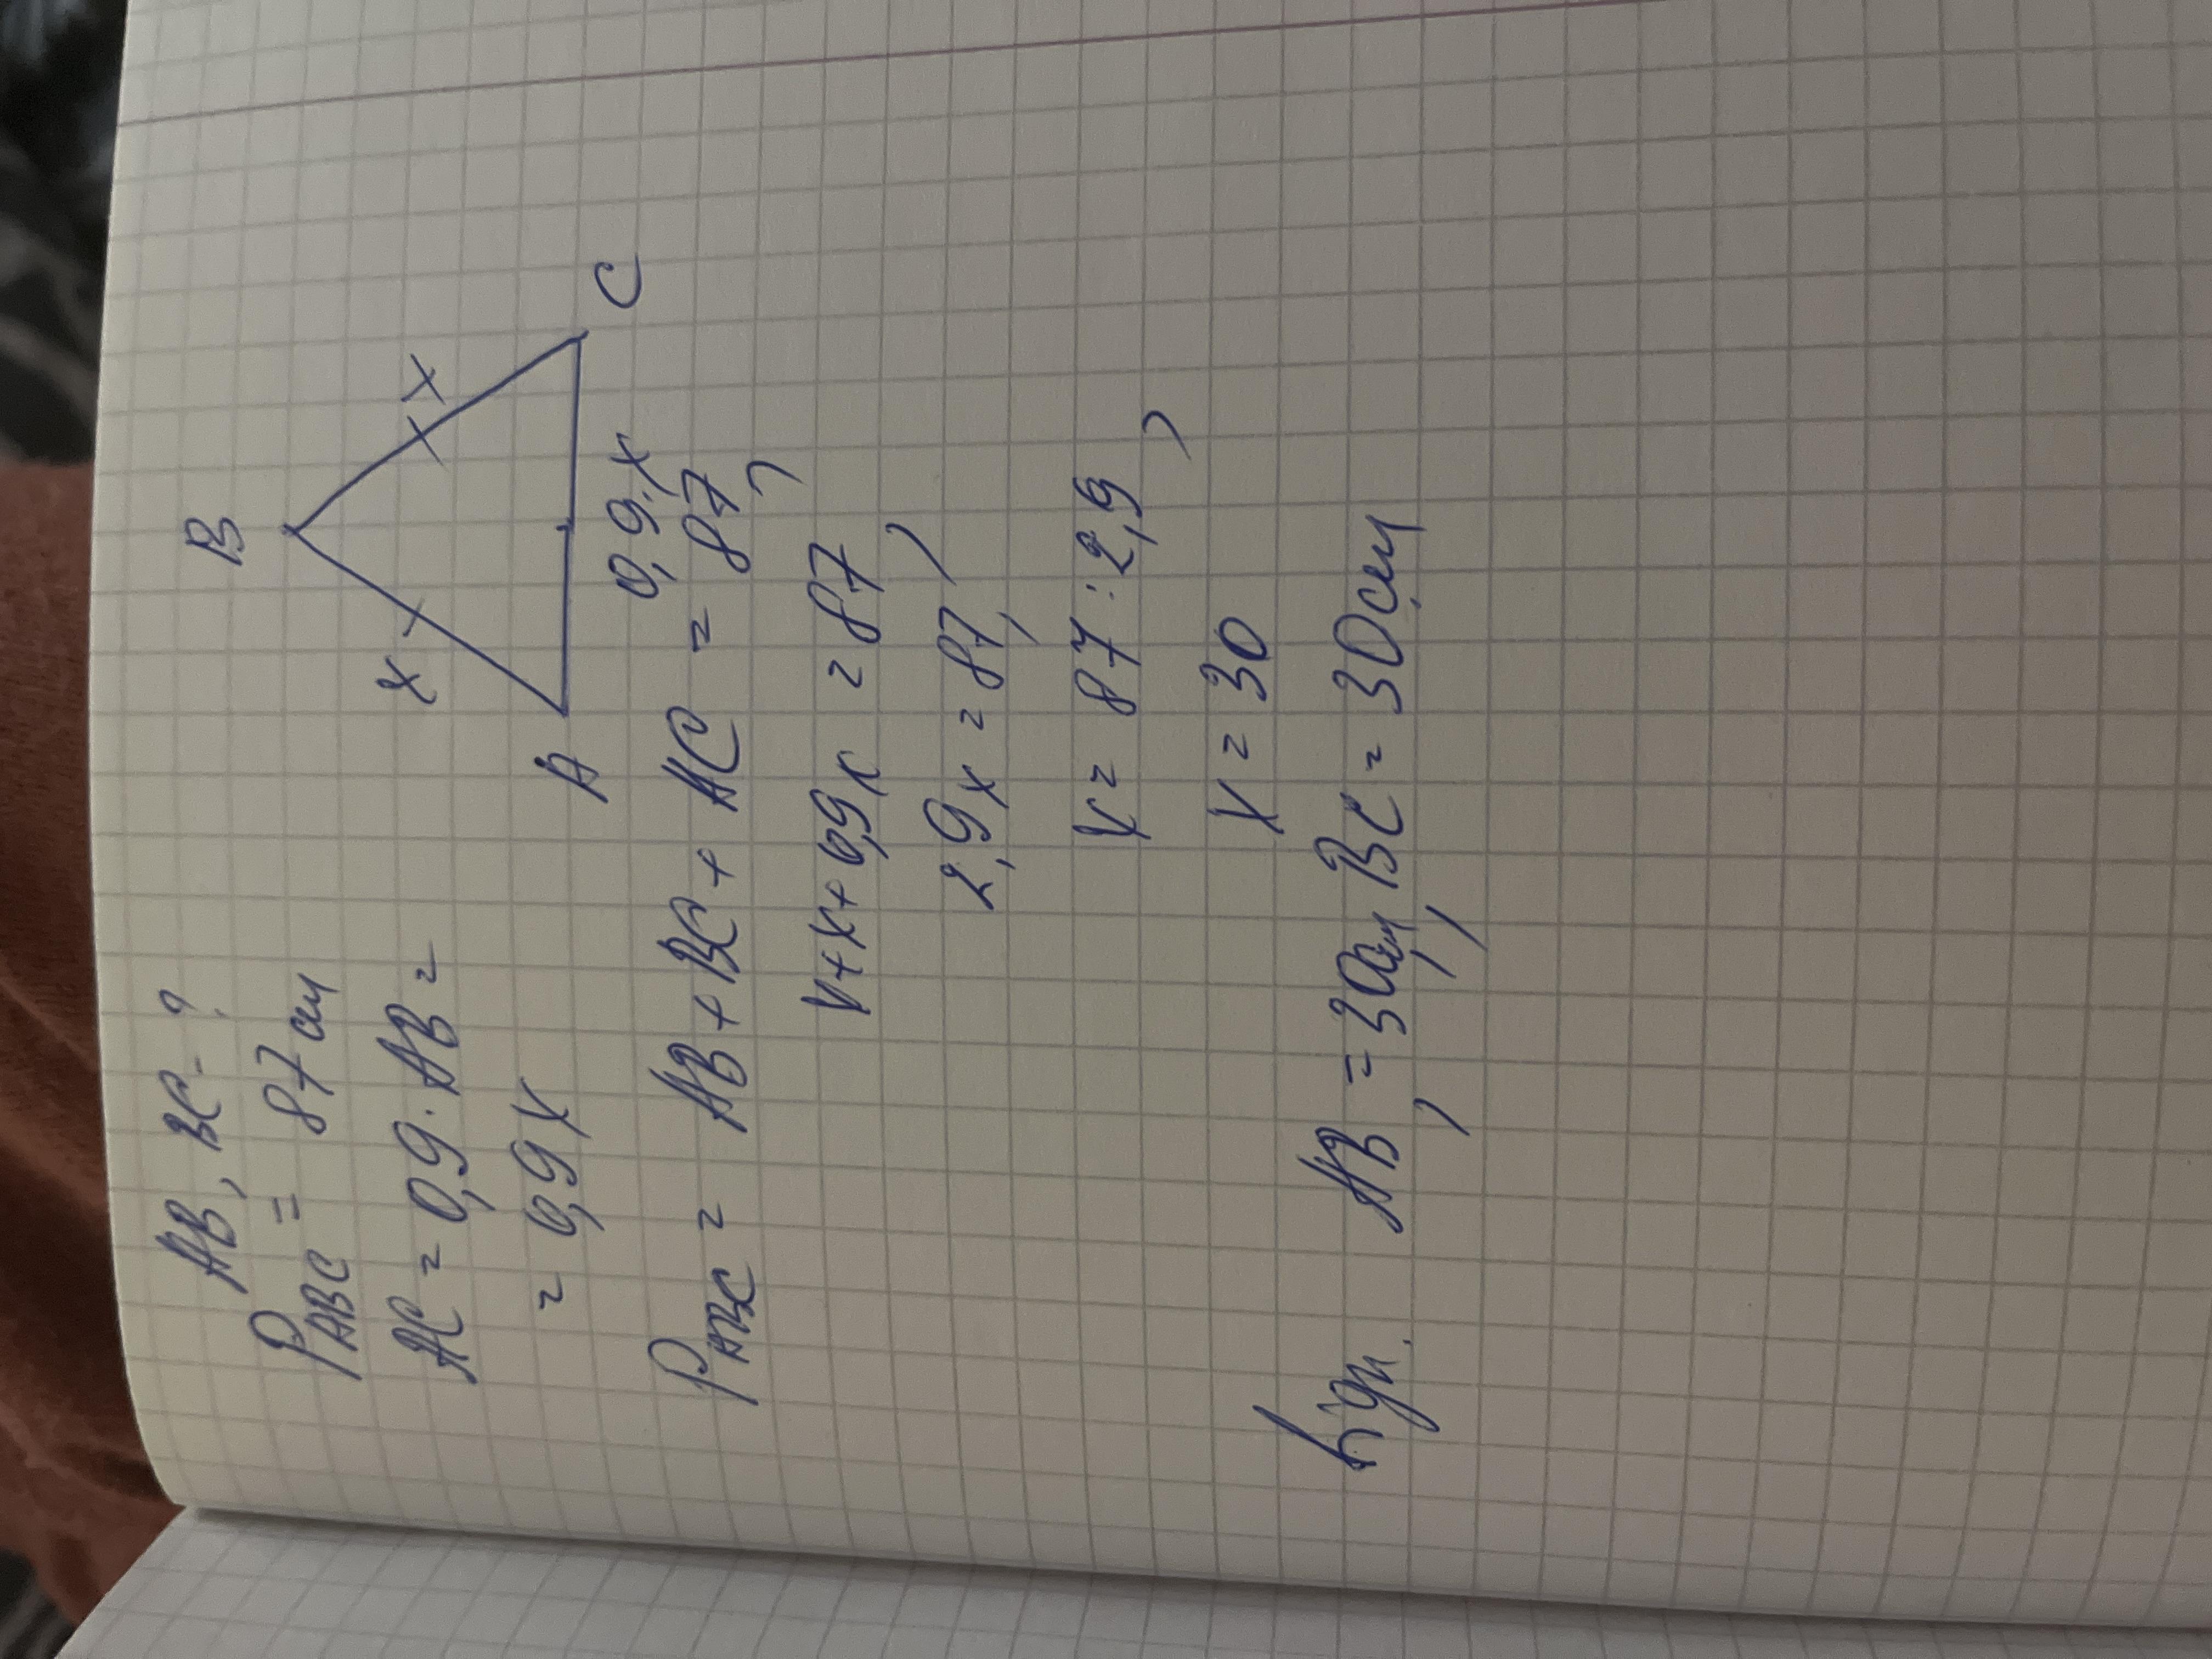 AB, BC - ?
P ABC = 87 см
AC = 0,9 · AB =
= 0,9 x
B
x
x
A
C
0,9·x
P ABC = AB + BC + AC = 87
x + x + 0,9 x = 87
2,9 x = 87,
x = 87 : 2,9
x = 30
Відп. AB = 30 см, BC = 30 см